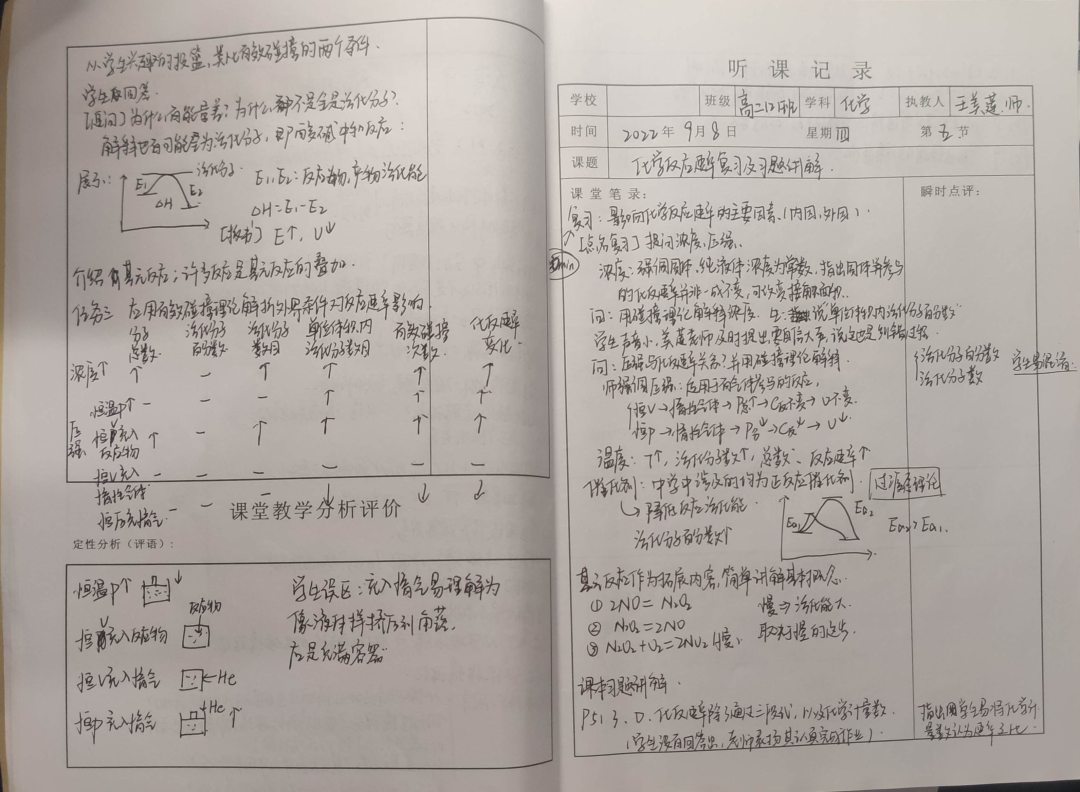 从学生兴趣的投篮，类比有效碰撞的两个条件.
学生回答.
[追问] 为什么有能量差？为什么不是全是活化分子？
解释也有可能 为活化分子，即 中和反应：
展示： E₁ E₂ ΔH 活化分子 E₁、E₂：反应物，产物活化能
ΔH=E₁-E₂
[板书] E↑，U↓
介绍基元反应；许多反应是基元反应的叠加.
任务三 应用有效碰撞理论解析外界条件对反应速率影响.
分子总数 活化分子百分数 活化分子数目 单位体积内活化分子数目 有效碰撞次数 化反速率变化
浓度↑ ↑ — ↑ ↑ ↑ ↑
压强 恒温P↑ — — — ↑ ↑ ↑
恒V充入反应物 ↑ — ↑ ↑ ↑ ↑
恒V充入惰性气体 — — — — — —
恒压充惰气. — — — ↓ ↓ ↓
课堂教学分析评价
定性分析（评语）：
恒温P↑ ↓
恒V充入反应物 反应物
恒V充入惰气 ←He
恒P充入惰气 ↓He ↑
学生误区：充入惰气易理解为
像液体样挤压到角落.
应是充满容器
听 课 记 录
学校 班级 高二12班 学科 化学 执教人 王美莲师
时间 2022年 9月 8日 星期 四 第 五 节
课题 化学反应速率复习及习题讲解.
课 堂 笔 录： 瞬时点评：
复习：影响化学反应速率的主要因素.（内因，外因）.
[点名复习] 提问浓度、压强.
min
浓度：强调固体、纯液体浓度为常数，指出固体并参与
的化反速率并非一成不变，可改变接触面积.
问：用碰撞理论解释浓度. 生：说单位体积内活化分子百分数
学生声音小，美莲老师及时提出要自信大声，说这也是纠错过程.
问：压强与化反速率关系？并用碰撞理论解释
师强调压强：应用于有气体参与的反应，
恒V→惰性气体→P总↑→C反不变→U不变.
恒P→惰性气体→P分↓→C反↓→U↓.
活化分子百分数
活化分子数 学生易混淆：
温度：T↑，活化分子数↑，总数 、反应速率↑
催化剂：中学中涉及的均为正反应催化剂. 过渡态理论
↳降低反应活化能
活化分子百分数↑
Ea₁ Ea₂ Ea₂>Ea₁.
基元反应作为拓展内容，简单讲解基本概念.
① 2NO = N₂O₂ 慢⇒活化能大.
② N₂O₂=2NO 取决于慢的这步.
③ N₂O₂+O₂=2NO₂ 慢；
课本习题讲解.
P51 3. D. 化反速率除了通过 代，以及化学计量数.
（学生没有回答出，老师表扬其认真完成作业）.
指出学生易将化学计
量数认为速率之比.